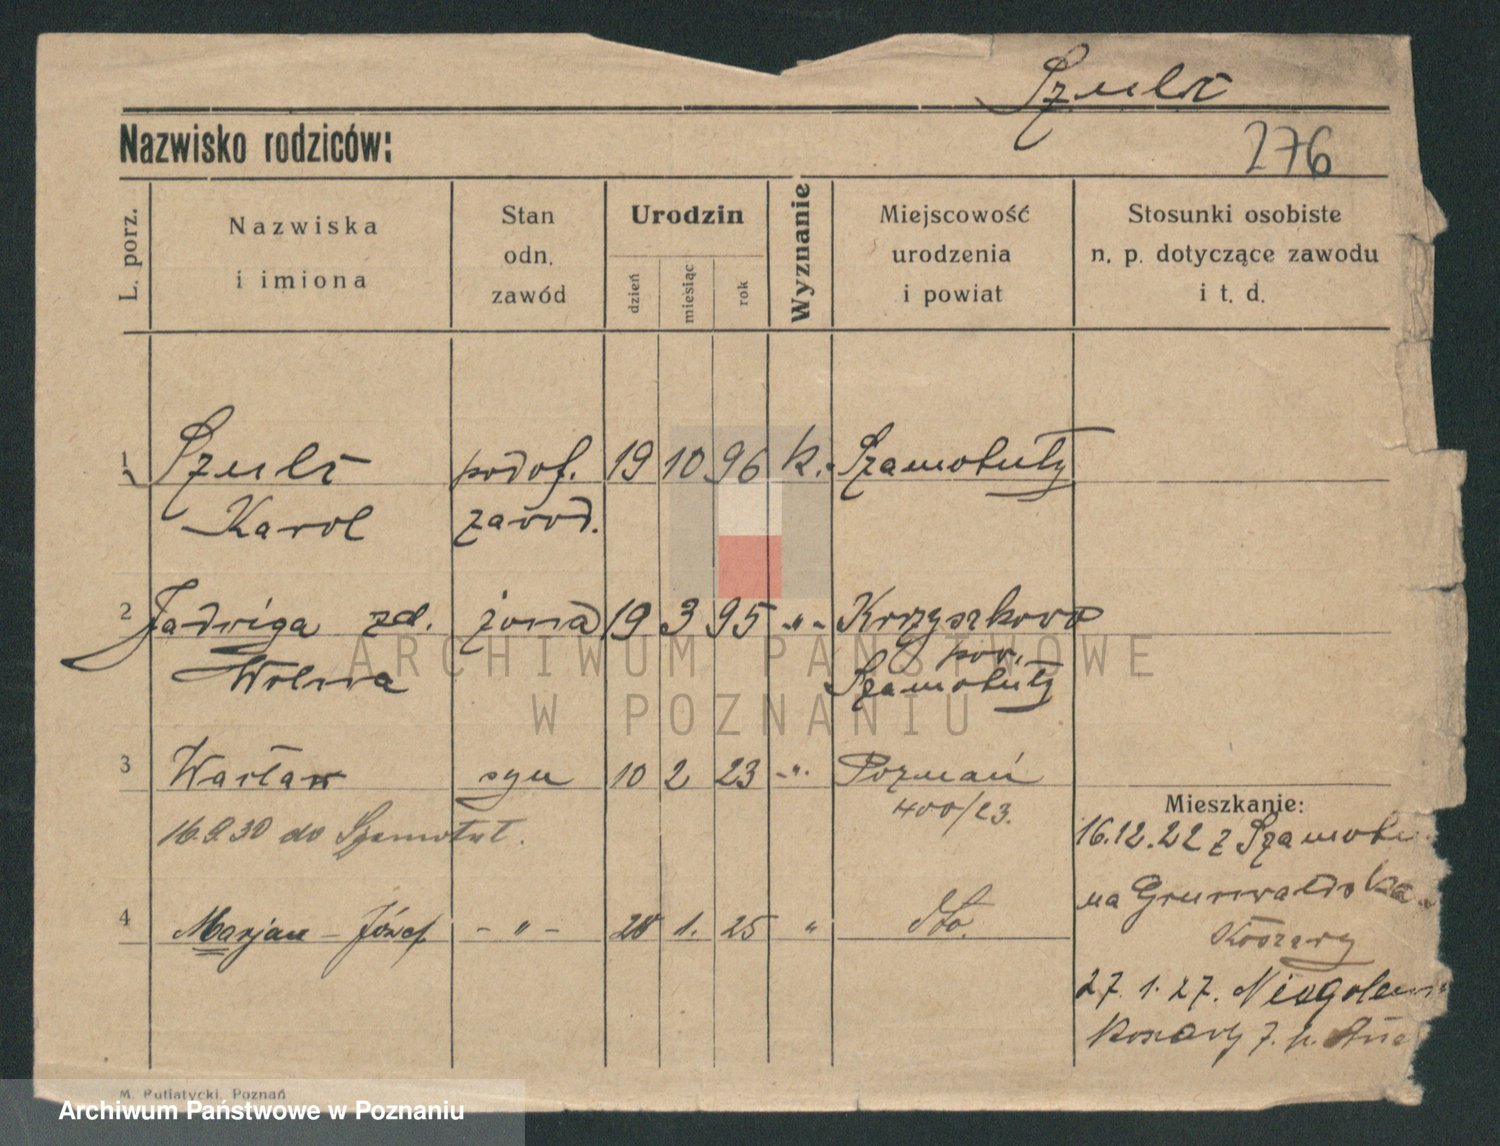 Szulc
276
Nazwisko rodziców:
L. porz.
Nazwiska
i imiona
Stan
odn.
zawód
Urodzin
dzień
miesiąc
rok
Wyznanie
Miejscowość
urodzenia
i powiat
Stosunki osobiste
n. p. dotyczące zawodu
i t. d.
1 Szulc podof. 19 10 96 k. Szamotuły
Karol zawod.
2 Jadwiga zd. żona 19 3 95 -"- Krzyszkowo
pow.
Wolna Szamotuły
3 Wacław syn 10 2 23 -"- Poznań
400/23.
16.9.30 do Szamotuł.
4 Marjan - Józef - " - 1. 25 " dto.
Mieszkanie:
16.12.22 z Szamotu
na Grunwaldzka
Koszary
27. 1. 27. Niegolew
Koszary 7. p.
M. Putiatycki, Poznań
ARCHIWUM PAŃSTWOWE
W POZNANIU
Archiwum Państwowe w Poznaniu